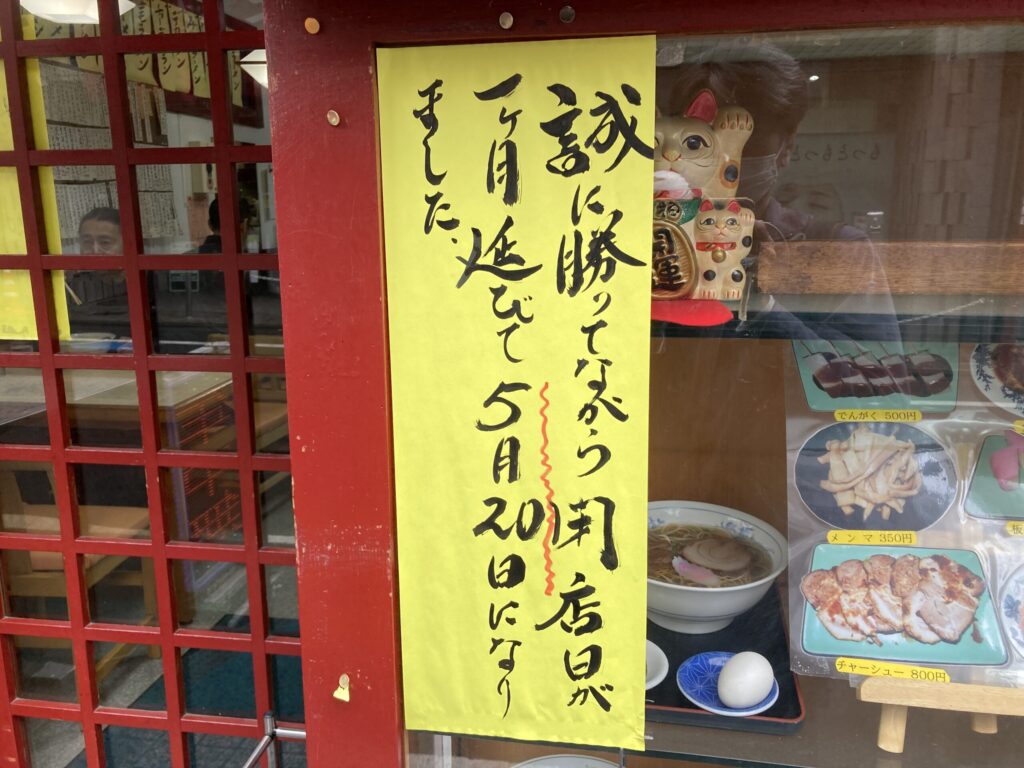 誠に勝ってながら閉店日が
一ヶ月延びて5月20日になり
ました、
開運
でんがく 500円
メンマ 350円
チャーシュー 800円